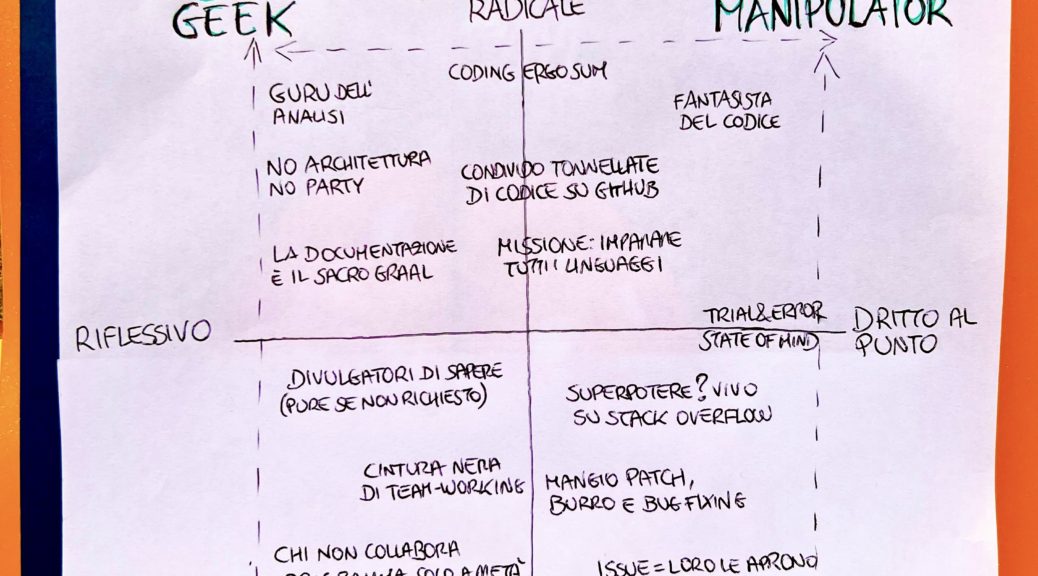 GEEK
RADICALE
MANIPOLATOR
CODING ERGO SUM
GURU DELL'
ANALISI
FANTASISTA
DEL CODICE
NO ARCHITETTURA
NO PARTY
CONDIVIDO TONNELLATE
DI CODICE SU GITHUB
LA DOCUMENTAZIONE
È IL SACRO GRAAL
MISSIONE: IMPARARE
TUTTI I LINGUAGGI
RIFLESSIVO
TRIAL&ERROR
STATE OF MIND
DRITTO AL
PUNTO
DIVULGATORI DI SAPERE
(PURE SE NON RICHIESTO)
SUPERPOTERE? VIVO
SU STACK OVERFLOW
CINTURA NERA
DI TEAM-WORKING
MANGIO PATCH,
BURRO E BUGFIXING
CHI NON COLLABORA
PROGRAMMA SOLO A METÀ
ISSUE = LORO LE APRONO